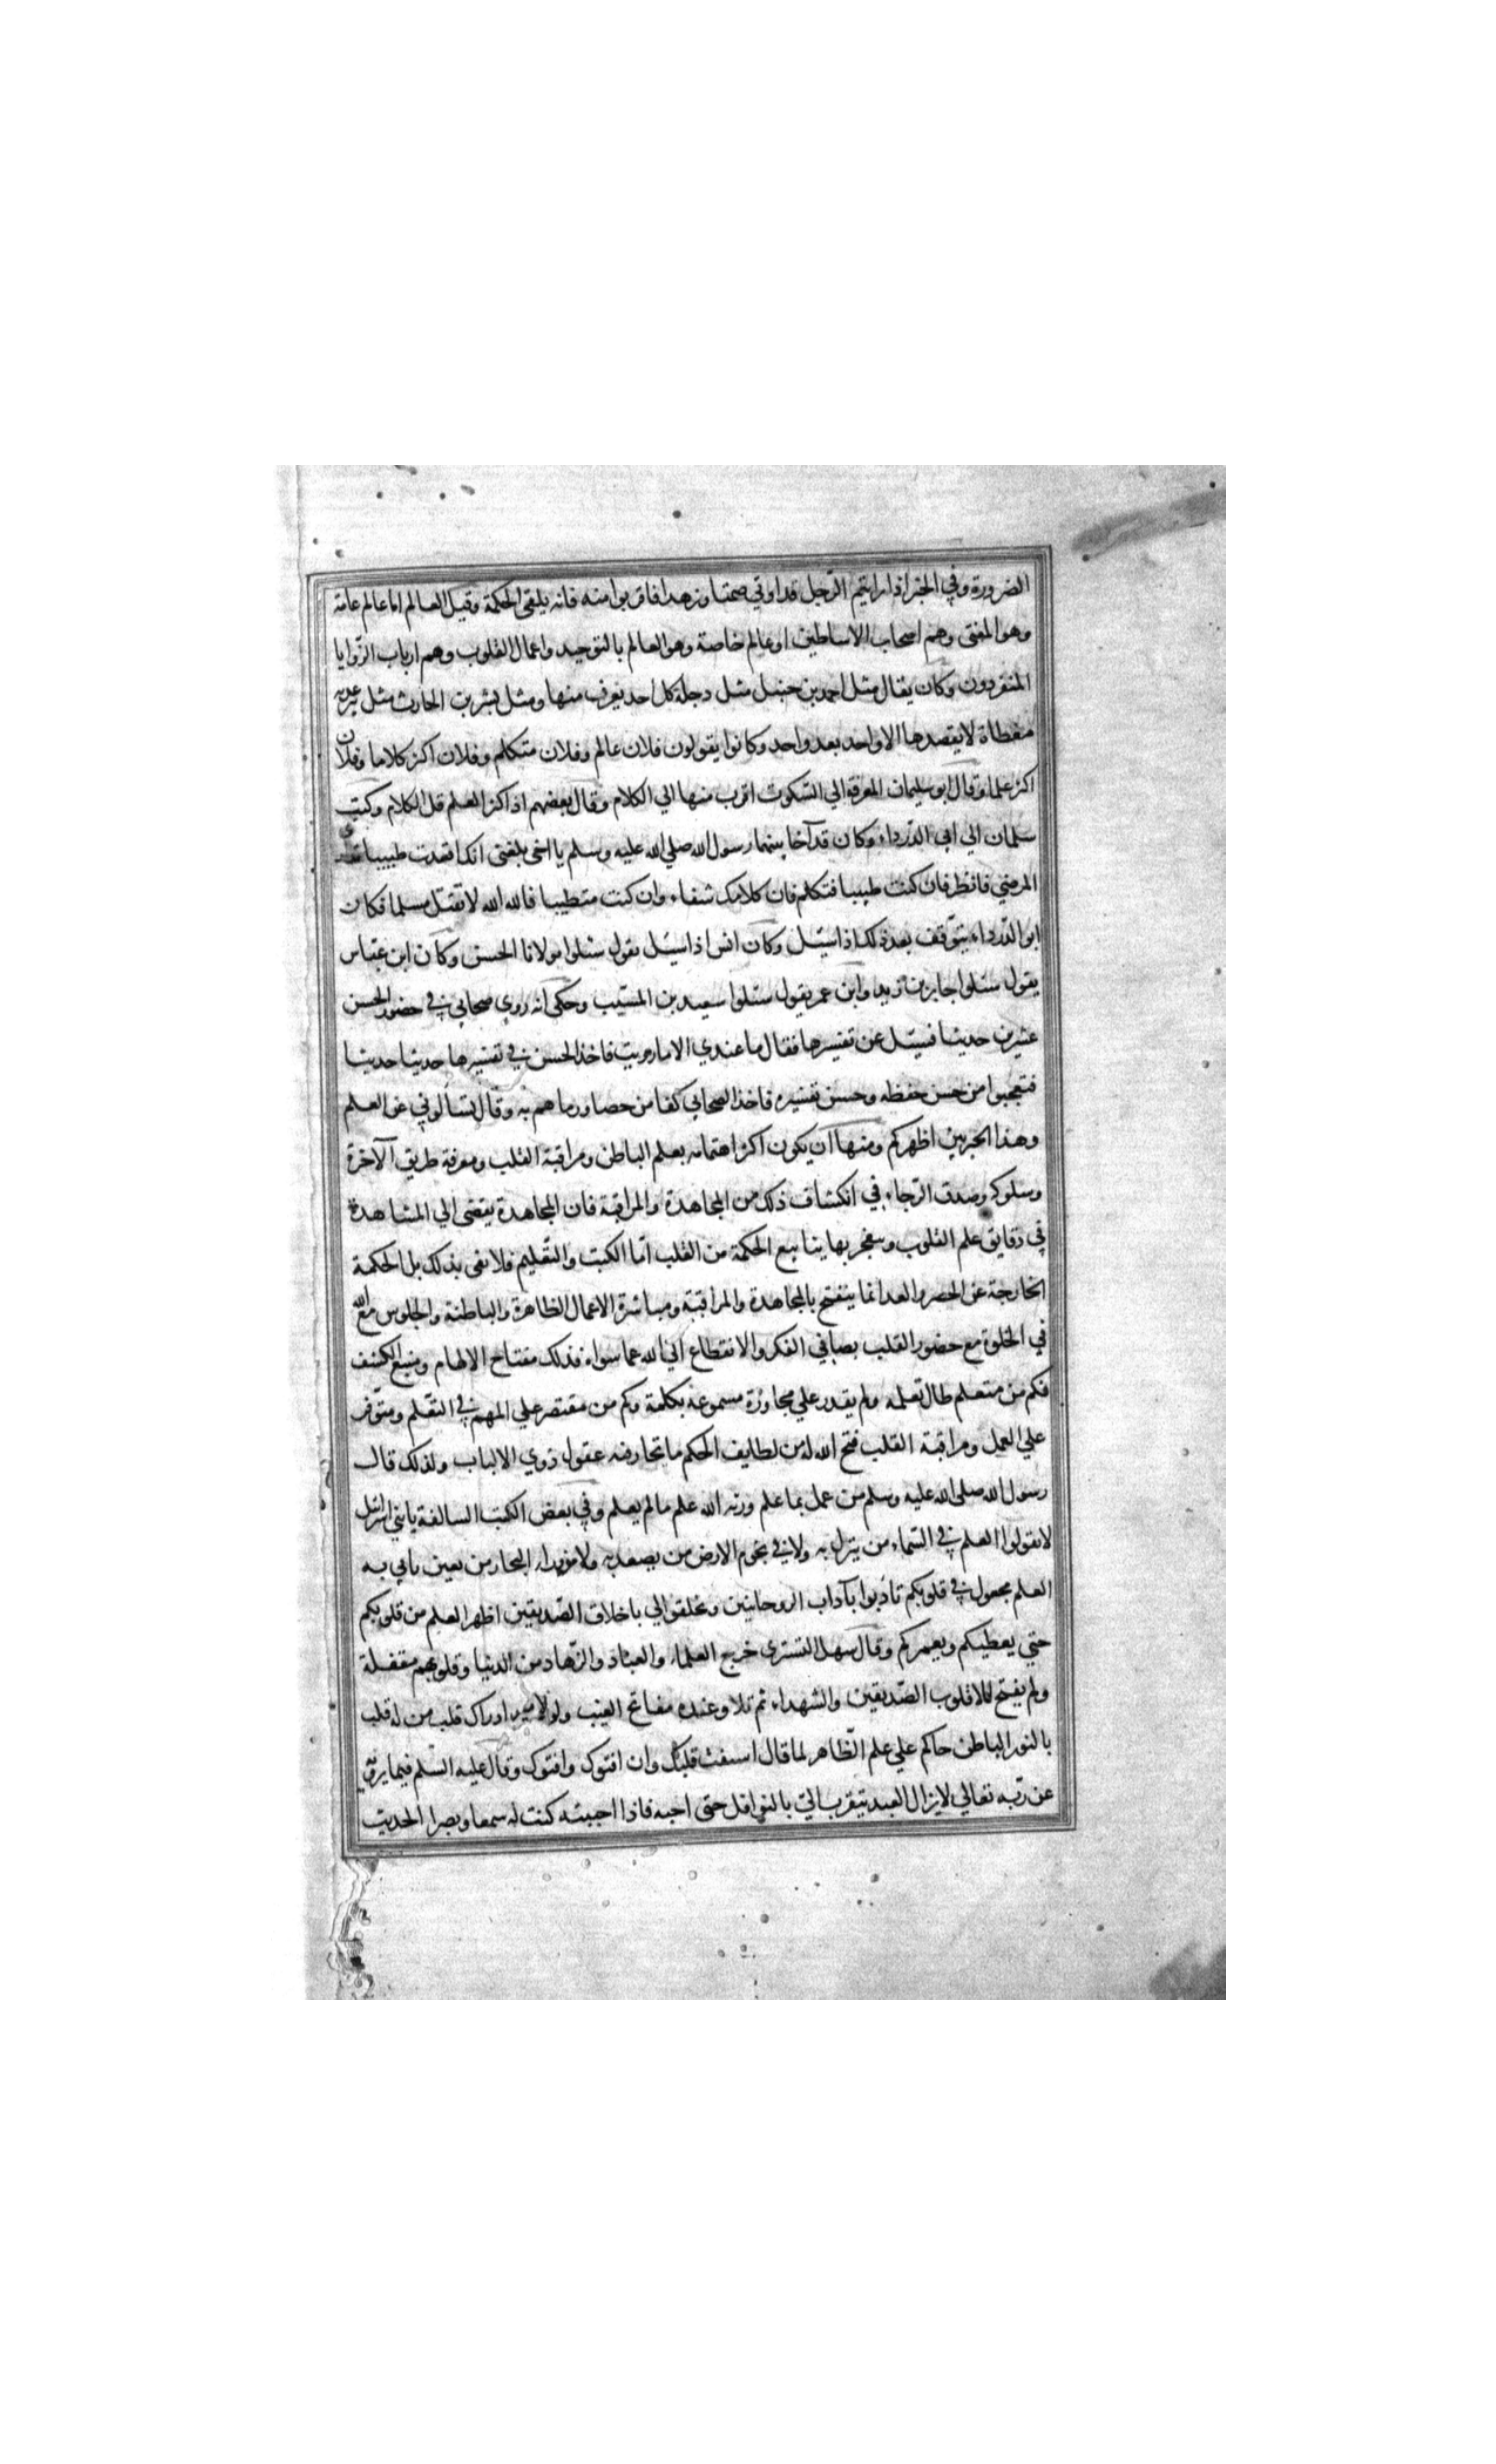 الضرورة وفي الخبر اذا رايتم الرّجل قد اوتي صمتا وزهدا فاقربوا منه فانه يلقي الحكمة وقيل العالم اما عالم عامة
وهو المفتى وهم اصحاب الاساطين او عالم خاصة وهو العالم بالتوحيد واعمال القلوب وهم ارباب الزّوايا
المنفردون وكان يقال مثل احمد بن حنبل مثل دجلة كل احد يغرف منها ومثل بشر بن الحارث مثل بير عذبة
مغطاة لا يقصدها الا واحد بعد واحد وكانوا يقولون فلان عالم وفلان متكلم وفلان اكثر كلاما وفلان
اكثر علما وقال ابو سليمان المعرفة الي السّكوت اقرب منها الي الكلام وقال بعضهم اذا كثر العلم قل الكلام وكتب
سلمان الي ابي الدّرداء وكان قد آخا بينهما رسول الله صلي الله عليه وسلم يا اخى بلغنى انك اقعدت طبيبا
المرضي فانظر فان كنت طبيبا فتكلم فان كلامك شفاء وان كنت متطببا فالله الله لا تقتل مسلما فكان
ابو الدّرداء يتوّقف بعد ذلك اذا سئل وكان انس اذا سئل يقول سئلوا مولانا الحسن وكان ابن عبّاس
يقول سئلوا جابر بن زيد وابن عمر يقول سئلوا سعيد بن المسيّب وحكى انه روي صحابي في حضور الحسن
عشرين حديثا فسئل عن تفسيرها فقال ما عندي الا ما رويت فاخذ الحسن في تفسيرها حديثا حديثا
فتعجبوا من حسن حفظه وحسن تفسيره فاخذ الصحابي كفا من حصا ورماهم به وقال تسألوني عن العلم
وهذا الحبر بين اظهركم ومنها ان يكون اكثر اهتمامه بعلم الباطن ومراقبة القلب ومعرفة طريق الآخرة
وسلوكه وصدق الرّجاء في انكشاف ذلك من المجاهدة والمراقبة فان المجاهدة يفضى الي المشاهدة
في دقايق علم القلوب وينفجر بها ينابيع الحكمة من القلب امّا الكتب والتّعليم فلا تفى بذلك بل الحكمة
الخارجة عن الحصر والعد انما ينفتح بالمجاهدة والمراقبة ومباشرة الاعمال الظاهرة والباطنة والجلوس مع الله
في الخلوة مع حضور القلب بصافي الفكر والانقطاع الي الله عما سواه فذلك مفتاح الالهام ومنبع الكشف
فكم من متعلم طال تعلمه ولم يقدر علي مجاوزة مسموعه بكلمة وكم من مقتصر علي المهم في التّعلم ومتوّفر
علي العمل ومراقبة القلب فتح الله له من لطايف الحكم ما تحار فيه عقول ذوي الالباب ولذلك قال
رسول الله صلي الله عليه وسلم من عمل بما علم ورثه الله علم مالم يعلم وفي بعض الكتب السالفة يا بنى اسرائيل
لا تقولوا العلم في السّماء من ينزل به ولا في تخوم الارض من يصعد به ولا من وراء البحار من يعبر ياتي به
العلم مجعول في قلوبكم تادّبوا بآداب الروحانيين وتخلقوا الي باخلاق الصّديقين اظهر العلم من قلوبكم
حتي يعطيكم ويعمركم وقال سهل التسترى خرج العلماء والعبّاد والزّهاد من الدنيا وقلوبهم مقفلة
ولم يفتح الا قلوب الصّديقين والشهداء ثم تلا وعنده مفاتح الغيب ولولا ادراك قلب من له قلب
بالنور الباطن حاكم علي علم الظّاهر لما قال استفت قلبك وان افتوك وافتوك وقال عليه السّلم فيما يرويه
عن ربّه تعالي لا يزال العبد يتقرب اليّ بالنوافل حتى احبه فاذا احببته كنت له سمعا وبصرا الحديث